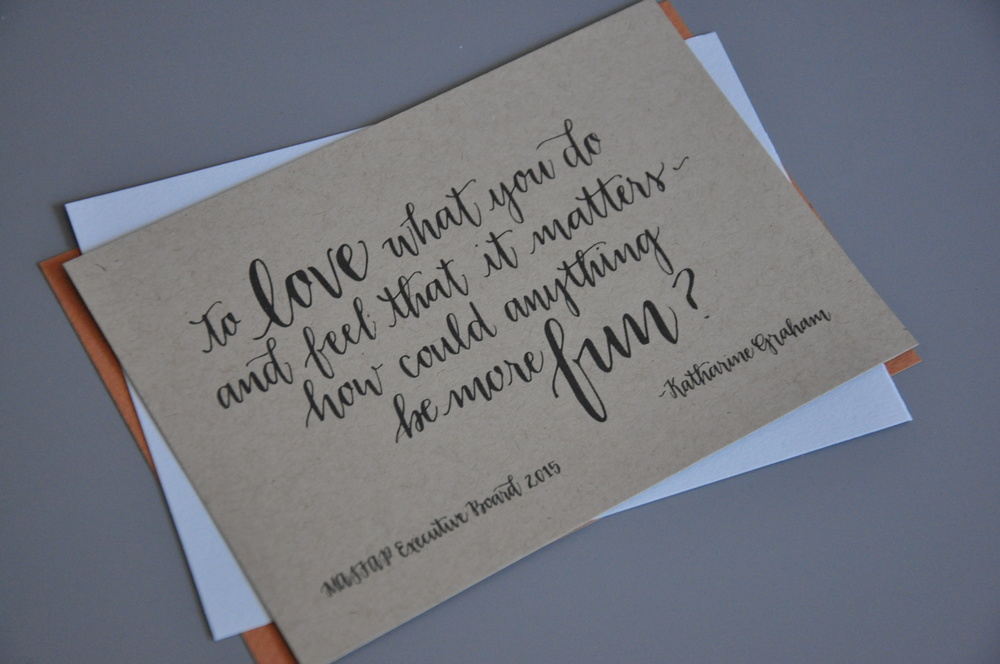 to love what you do
and feel that it matters-
how could anything
be more fun?
-Katharine Graham
MASFAP Executive Board 2015